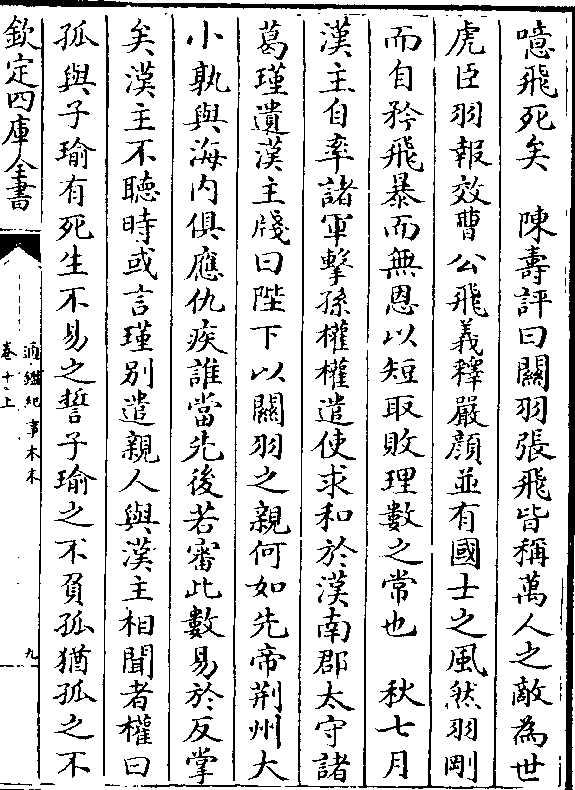 噫飛死矣　陳壽評曰關羽張飛皆稱萬人之敵為世
虎臣羽報效曹公飛義釋嚴顔並有國士之風然羽剛
而自矜飛暴而無恩以短取敗理數之常也　秋七月
漢主自率諸軍擊孫權權遣使求和於漢南郡太守諸
葛瑾遺漢主牋曰陛下以關羽之親何如先帝荆州大
小孰與海内俱應仇疾誰當先後若審此數易於反掌
矣漢主不聽時或言瑾别遣親人與漢主相聞者權曰
孤與子瑜有死生不易之誓子瑜之不負孤猶孤之不
欽定四庫全書
通鑑紀事本末
卷十上
九